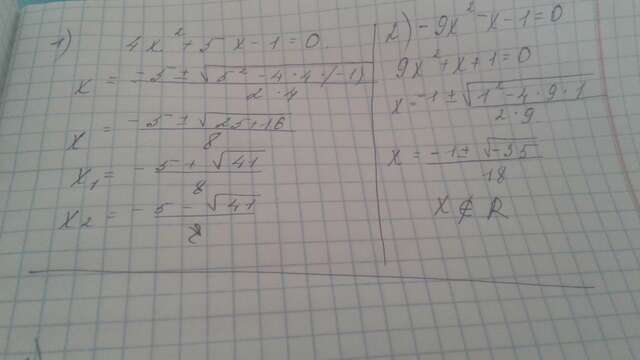 1) 4x² + 5x - 1 = 0
x = (-5 ± √(5² - 4·4·(-1)))/(2·4)
x = (-5 ± √(25+16))/8
x₁ = (-5 + √41)/8
x₂ = (-5 - √41)/8
2) -9x² - x - 1 = 0
9x² + x + 1 = 0
x = (-1 ± √(1² - 4·9·1))/(2·9)
x = (-1 ± √(-35))/18
x ∉ R